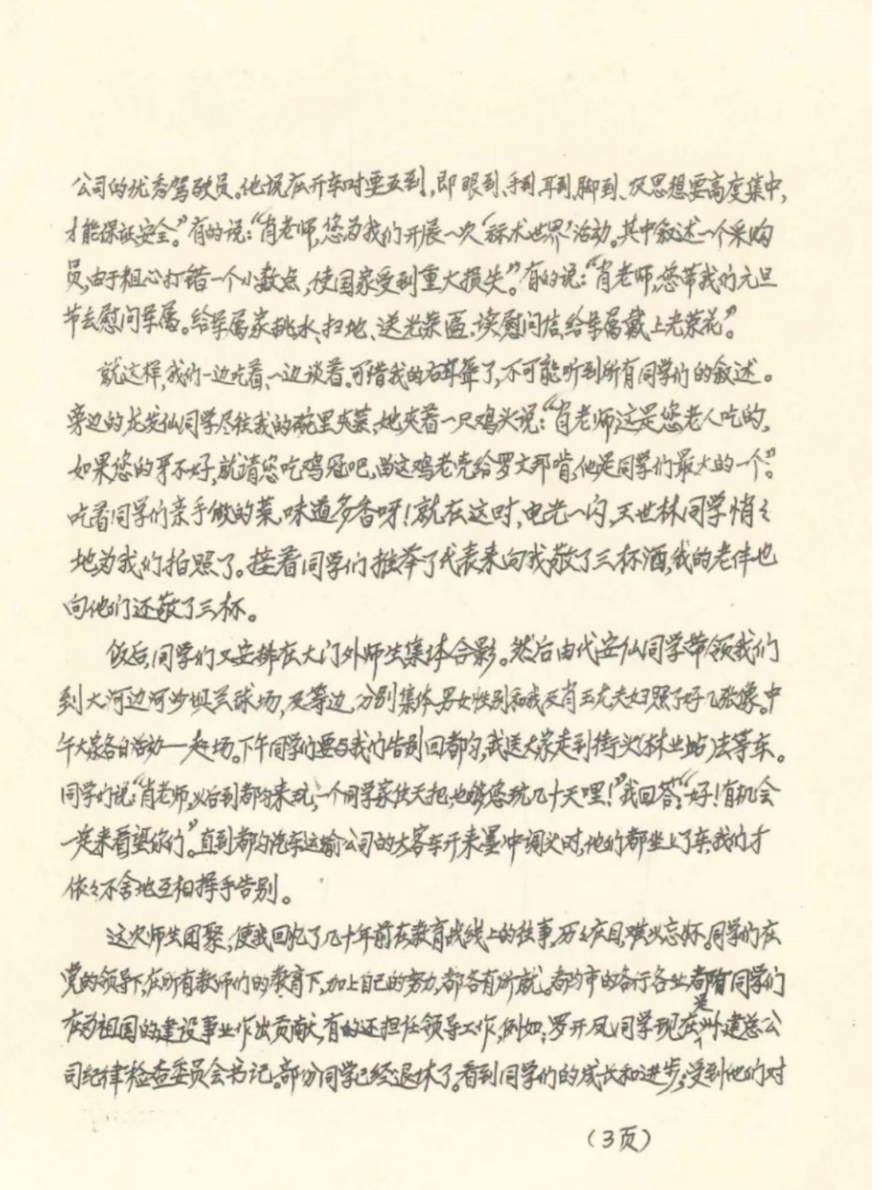 公司的优秀驾驶员。他说在开车时要五到,即眼到、手到、耳到、脚到、及思想要高度集中,
才能保证安全。”有的说:“肖老师,您为我们开展一次‘标术世界’活动。其中叙述一个采购
员,由于粗心打错一个小数点,使国家受到重大损失”。有的说:“肖老师,您带我们元旦
节去慰问军属。给军属家挑水、扫地、送光荣匾、读慰问信,给军属戴上光荣花”。
就这样,我们一边吃着、一边谈着。可惜我的右耳聋了,不可能听到所有同学们的叙述。
旁边的龙安仙同学尽往我的碗里夹菜,她夹着一只鸡头说:“肖老师这是您老人吃的,
如果您的牙不好,就请您吃鸡冠吧,留这鸡老壳给罗文邦啃,他是同学们最大的一个”。
吃着同学们亲手做的菜,味道多香呀!就在这时,电光一闪,王世林同学悄々
地为我们拍照了。接着同学们推举了代表来向我敬了三杯酒,我的老伴也
向他们还敬了三杯。
饭后,同学们又安排在大门外师生集体合影。然后由代安仙同学带领我们
到大河边河沙坝兰球场,及等边,分别集体、男女性别和我及肖玉尤夫妇照了好几张像。中
午大家各自活动一起场。下午同学们要与我们告别回都匀,我送大家走到街头(林业站)去等车。
同学们说:“肖老师,以后到都匀来玩,一个同学家住天把,也够您玩几十天哩!”我回答:“好!有机会
一定来看望你们”。直到都匀汽车运输公司的大客车开来墨冲调头时,他们都坐上了车,我们才
依々不舍地互相挥手告别。
这次师生团聚,使我回忆了几十年前在教育战线上的往事,历々在目,难以忘怀。同学们在
党的领导下,在所有教师们的教育下,加上自己的努力,都各有所就。都匀市的各行各业都有同学们
在为祖国的建设事业作出贡献,有的还担任领导工作,例如:罗开凤同学现在是州建总公
司纪律检查委员会书记。部份同学已经退休了。看到同学们的成长和进步,受到他们对
(3页)